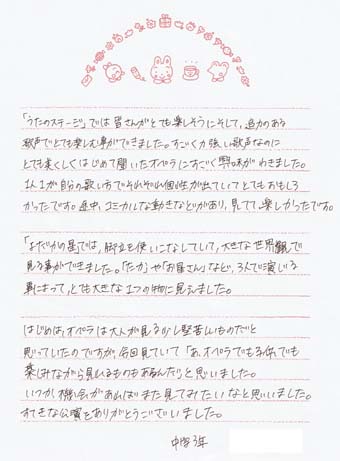 「うたのステージ」では皆さんがとても楽しそうにそして、迫力のある
歌声でとても楽しむ事ができました。すごく力強い歌声なのに
とても美しくはじめて聞いたオペラにすごく興味がわきました。
1人1人が自分の歌い方でそれぞれ個性が出ていてとてもおもしろ
かったです。途中、コミカルな動きなどがあり、見てて、楽しかったです。
「よだかの星」では、脚立を使いこなしていて、大きな世界観で
見る事ができました。「たか」や「お星さん」など、3人で演じる
事によって、とても大きな1つの物に見えました。
はじめは、オペラは大人が見る少し堅苦しいものだと
思っていたのですが、今回見ていて「あ、オペラでも子供でも
楽しみながら見れるものもあるんだ」と思いました。
いつか機会があればまた見てみたいなと思いました。
すてきな公演をありがとうございました。
中学3年